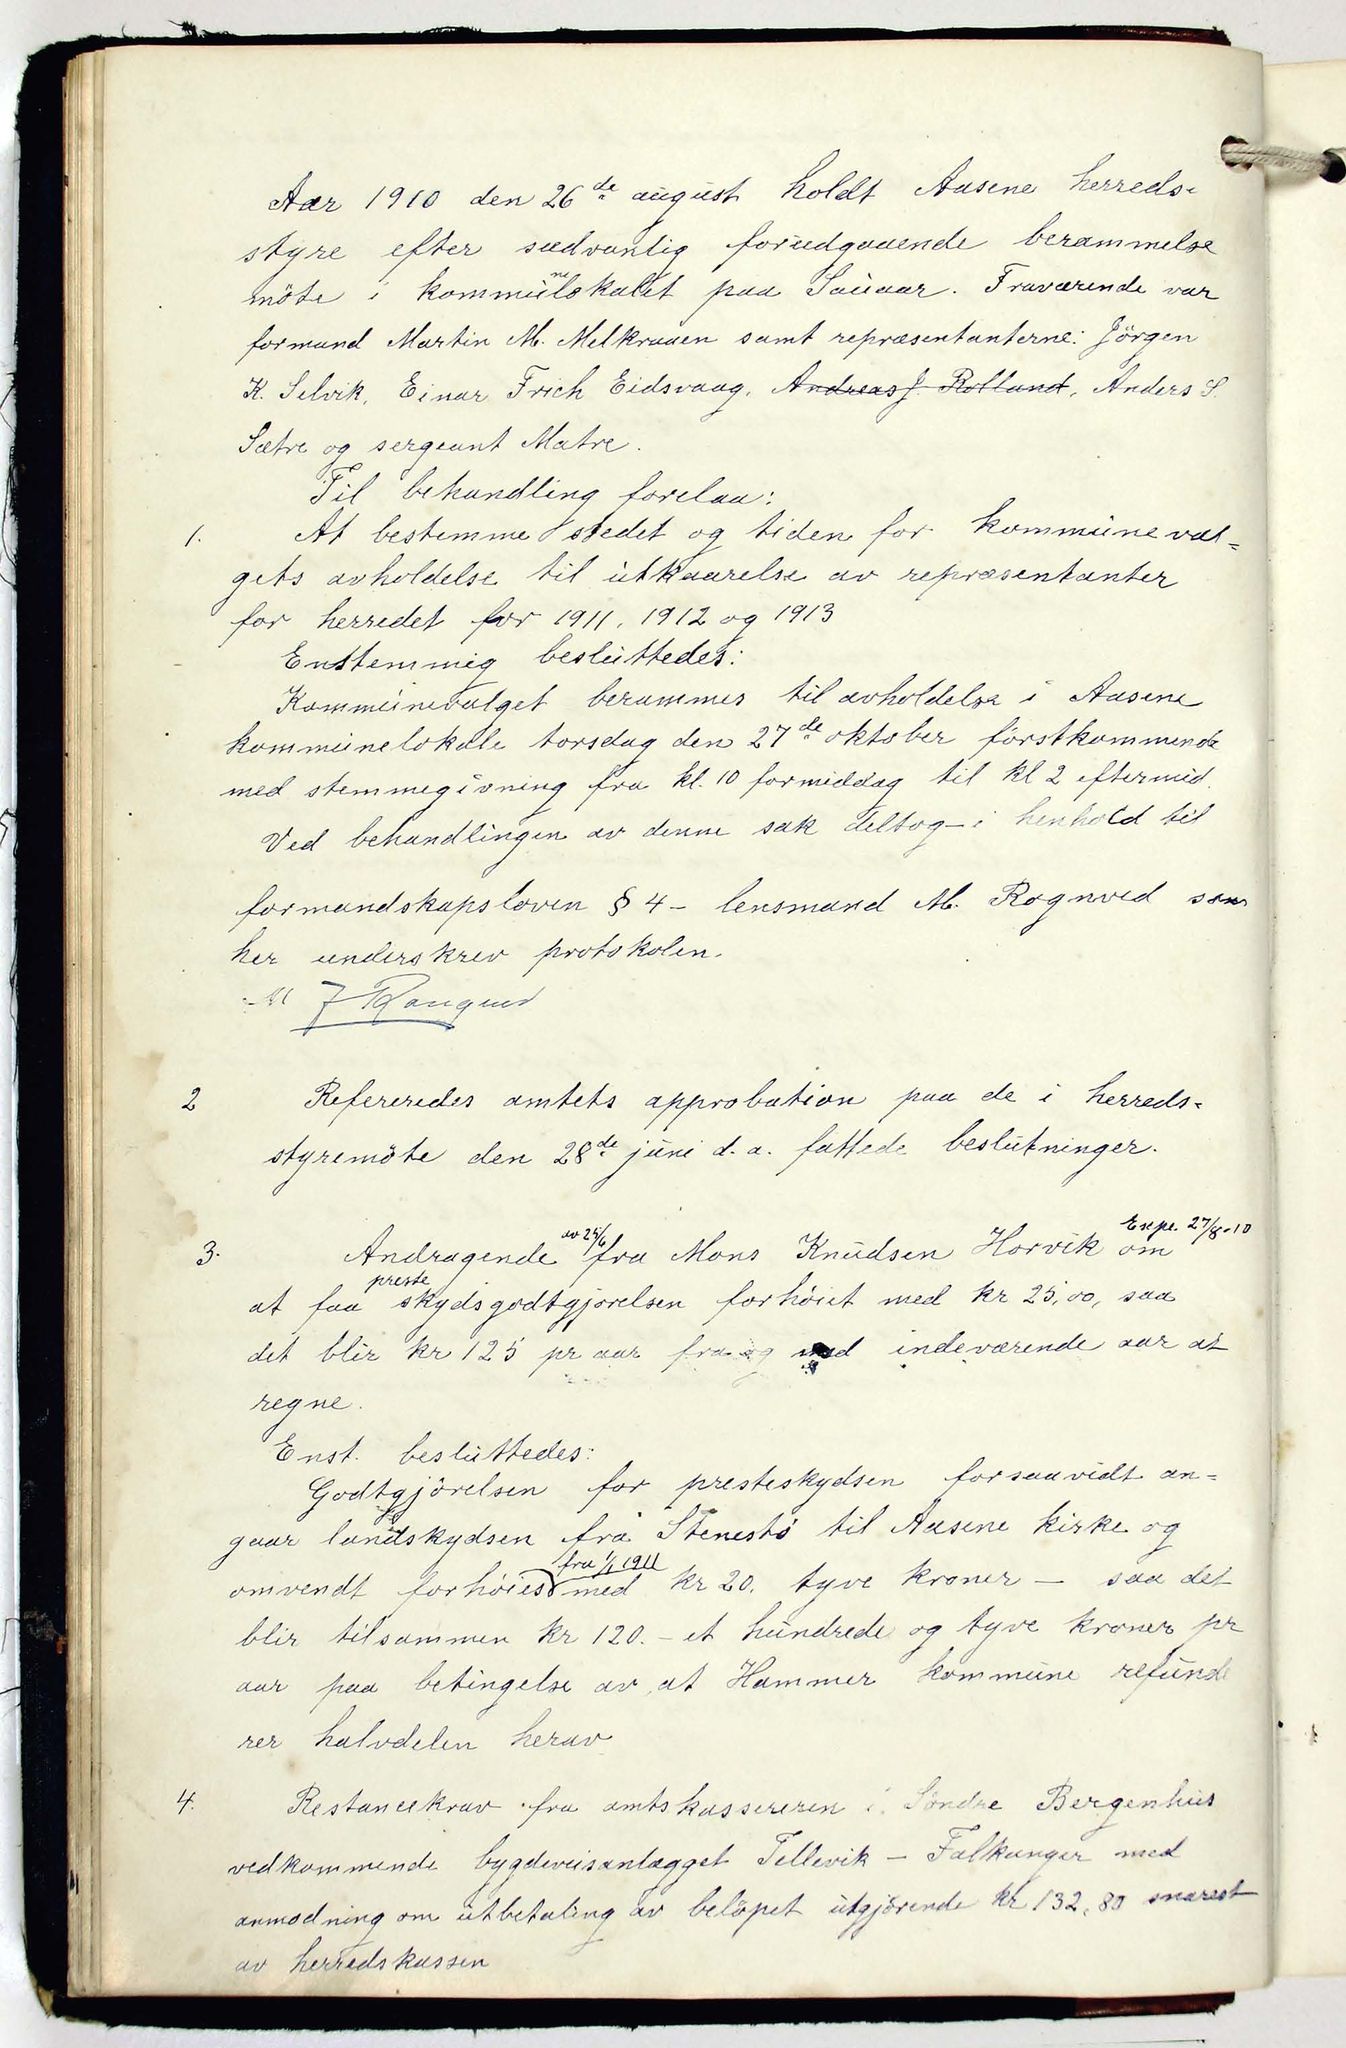 Aar 1910 den 26de august holdt Aasene herreds-
styre efter sædvanlig forudgaaende berammelse
møte i kommunelokalet paa Sauaar. Fraværende var
formand Martin M. Melkraaen samt repræsentanterne: Jörgen
K. Selvik, Einar Frich Eidsvaag, Andreas J. Rolland, Anders S.
Sætre og sergeant Matre.
Til behandling forelaa:
1. At bestemme stedet og tiden for kommuneval=
gets avholdelse til utkaarelse av repræsentanter
for herredet for 1911, 1912 og 1913
Enstemmig besluttedes:
Kommunevalget berammes til avholdelse i Aasene
kommunelokale torsdag den 27de oktober förstkommende
med stemmegivning fra kl. 10 formiddag til kl 2 eftermid.
Ved behandlingen av denne sak deltog - i henhold til
formandskapsloven § 4 - lensmand M. Rognved som
her underskrev protokolen.
M J Rangved
2 Refereredes amtets approbation paa de i herreds-
styremöte den 28de juni d.a. fattede beslutninger.
Expe. 27/8-10
3. Andragende av 25/6 fra Mons Knudsen Horvik om
at faa presteskydsgodtgjørelsen forhöiet med kr 25,00, saa
det blir kr 125 pr aar fra og med indeværende aar at
regne.
Enst. besluttedes:
Godtgjörelsen for presteskydsen forsaavidt an=
gaar landskydsen fra Stenestö til Aasene kirke og
omvendt forhöies fra 1/1 1911 med kr 20. tyve kroner - saa det
blir tilsammen kr 120. - et hundrede og tyve kroner pr
aar paa betingelse av at Hammer kommune refunde
rer halvdelen herav
4. Restancekrav fra amtskassereren i Söndre Bergenhus
vedkommende bygdeveisanlægget Tellevik - Falkanger med
anmodning om utbetaling av belöpet utgjörende kr 132,80 snarest
av herredskassen